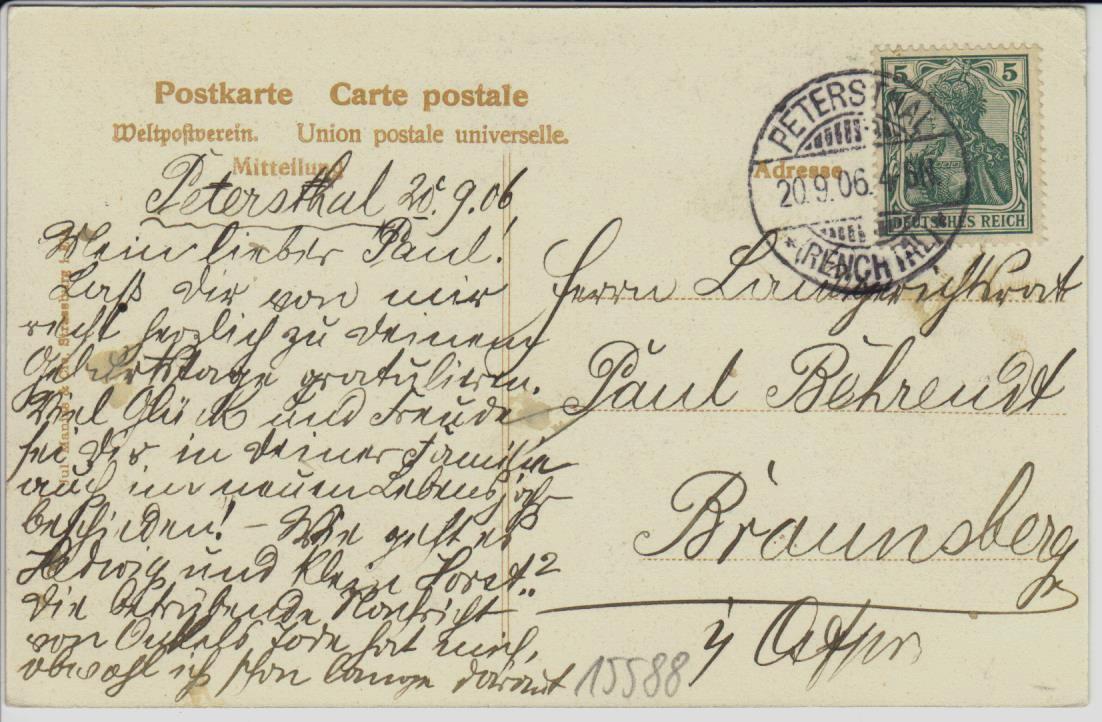 Postkarte Carte postale
Weltpostverein. Union postale universelle.
Mitteilung
Adresse
5 5
DEUTSCHES REICH
PETERSTHAL
20.9.06. 4-5N.
* (RENCHTAL)
Petersthal 20.9.06
Mein lieber Paul!
Laß Dir von mir
recht herzlich zu Deinem
Geburtstage gratulieren.
Viel Glück und Freude
sei Dir in Deiner Familie
auch im neuen Lebensjahr
beschieden! – Wie geht es
Hedwig und klein Horst?
Die betrübende Nachricht
von Onkels Tode hat mich,
obwohl ich schon lange darauf
Herrn Landgerichtsrat
Paul Behrendt
Braunsberg
i/ Ostpr.
15588